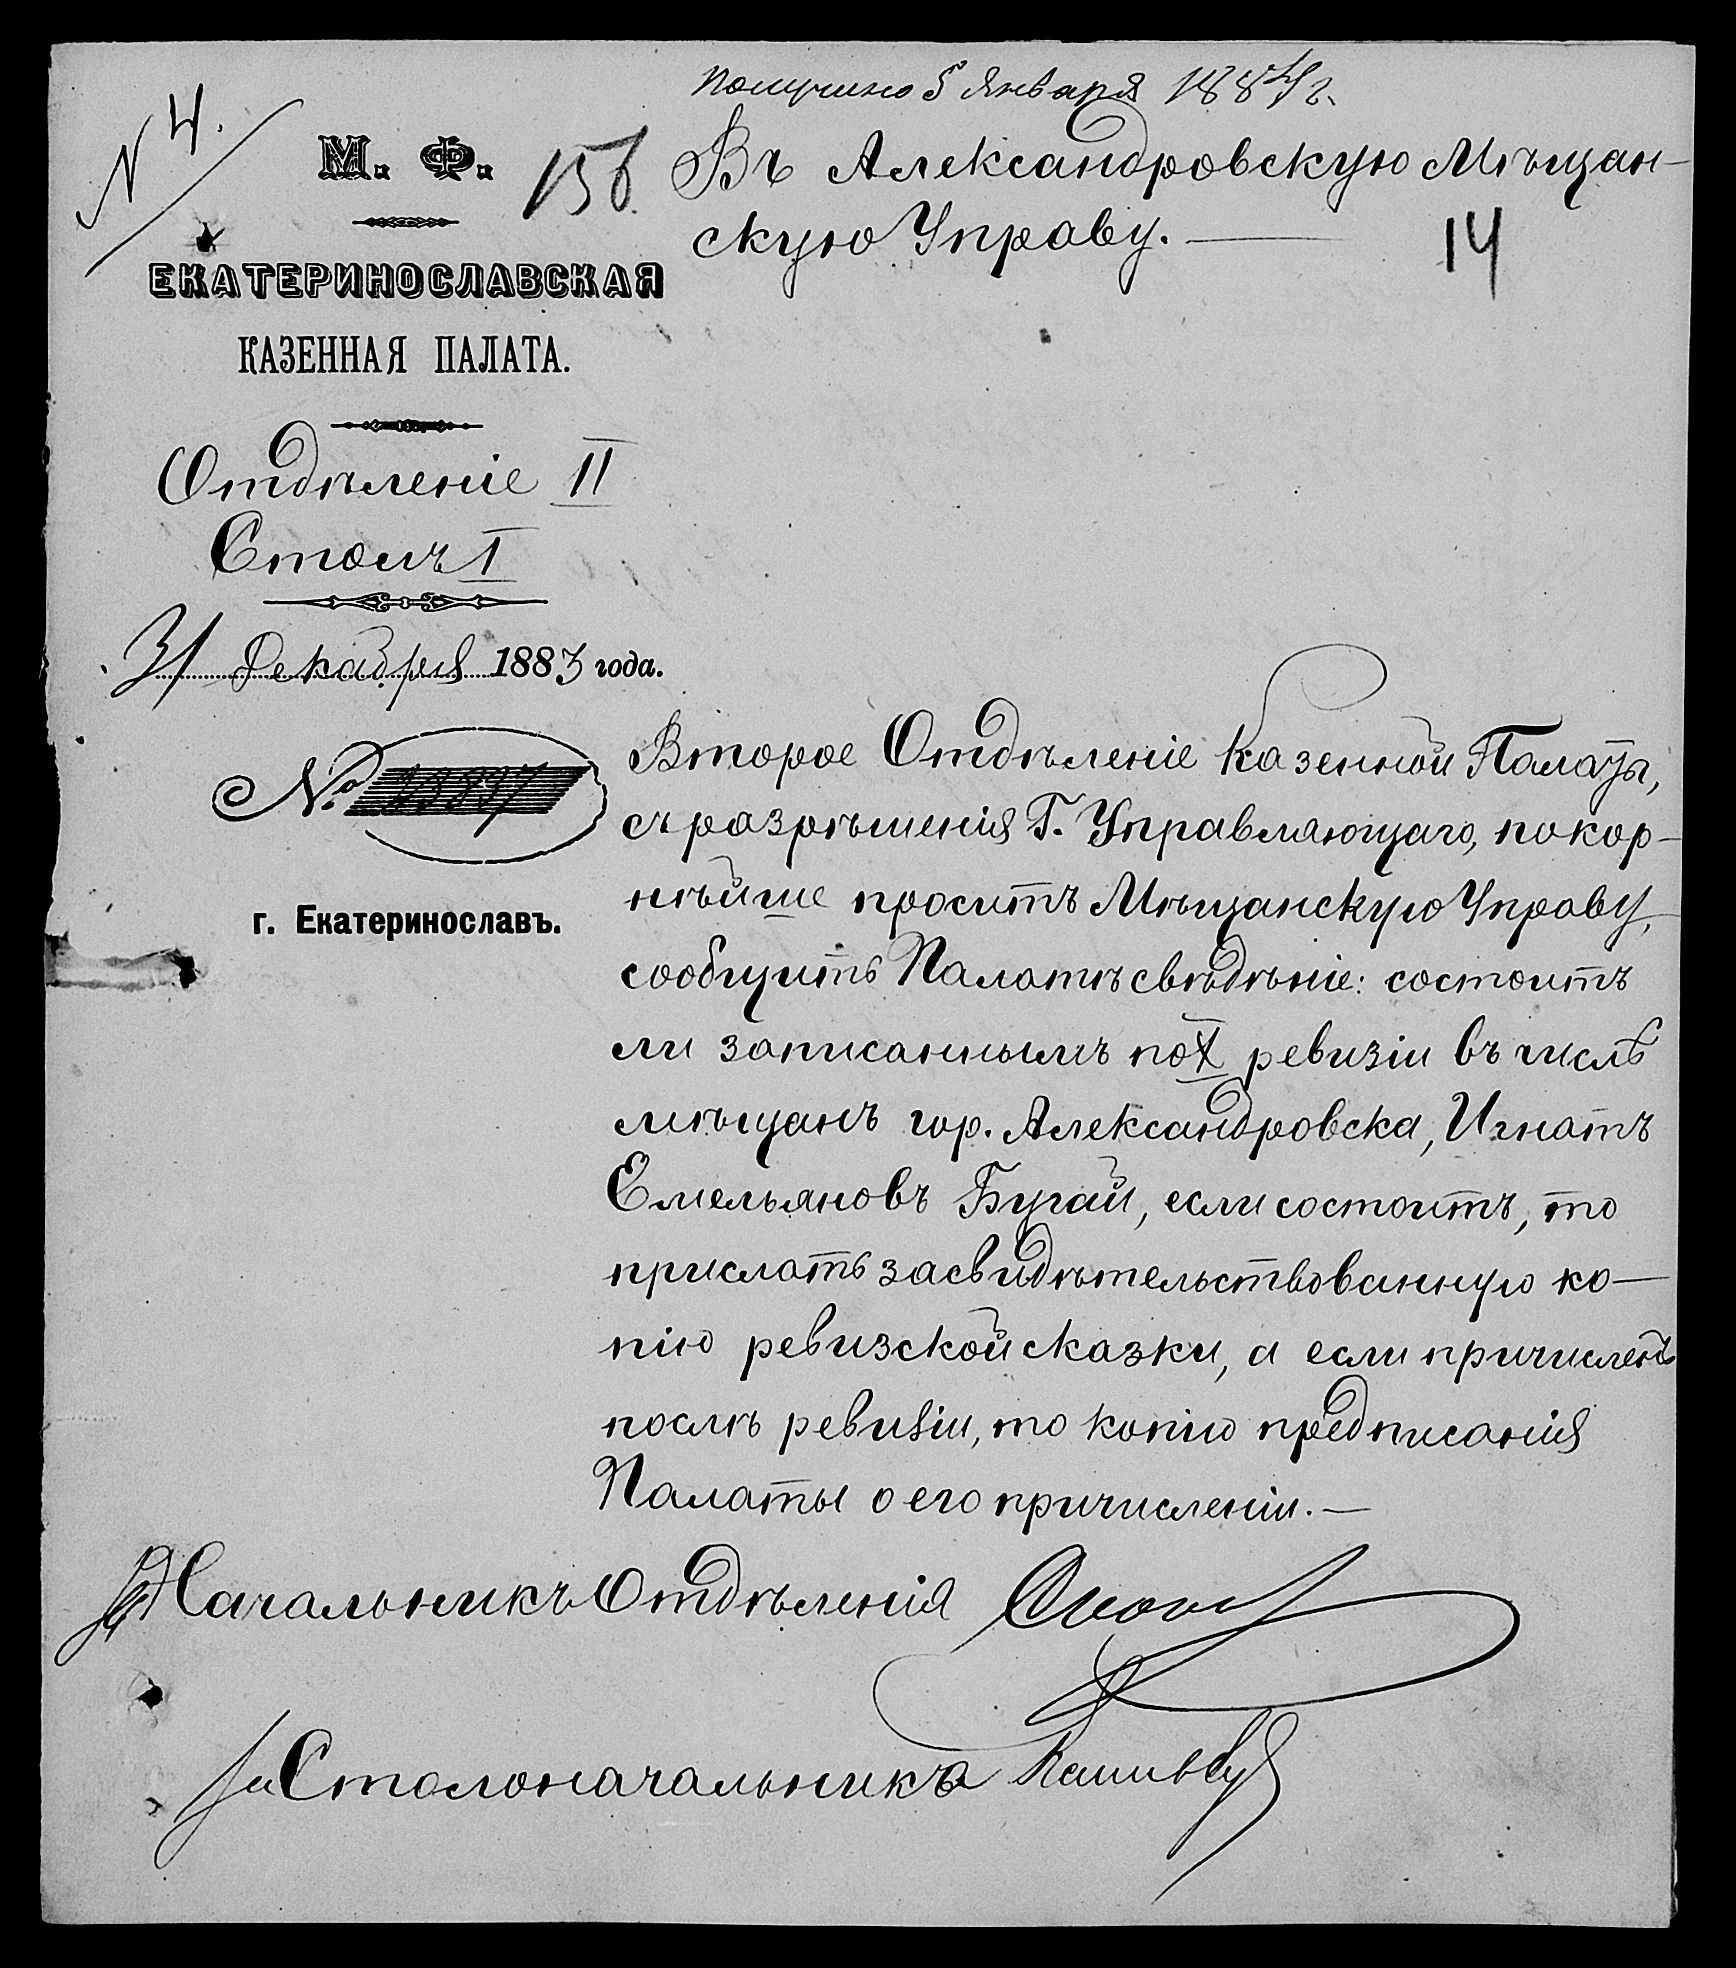 Получено 5 Января 1884 г.
N 4.
М. Ф.
156
Въ Александровскую Мѣщан-
скую Управу.
14
ЕКАТЕРИНОСЛАВСКАЯ
КАЗЕННАЯ ПАЛАТА.
Отдѣленіе II
Столъ I
31 Декабря 1883 года.
№ 23897
г. Екатеринославъ.
Второе Отдѣленіе Казенной Палаты,
съ разрѣшенія Г. Управляющаго, покор-
нѣйше проситъ Мѣщанскую Управу,
сообщить Палатѣ свѣдѣніе: состоитъ
ли записаннымъ по X ревизіи въ числѣ
мѣщанъ гор. Александровска, Игнатъ
Емельяновъ Бугай, если состоитъ, то
прислать засвидѣтельствованную ко-
пію ревизской сказки, а если причисленъ
послѣ ревизіи, то копію предписанія
Палаты о его причисленіи.
Начальникъ Отдѣленія
За Столоначальника